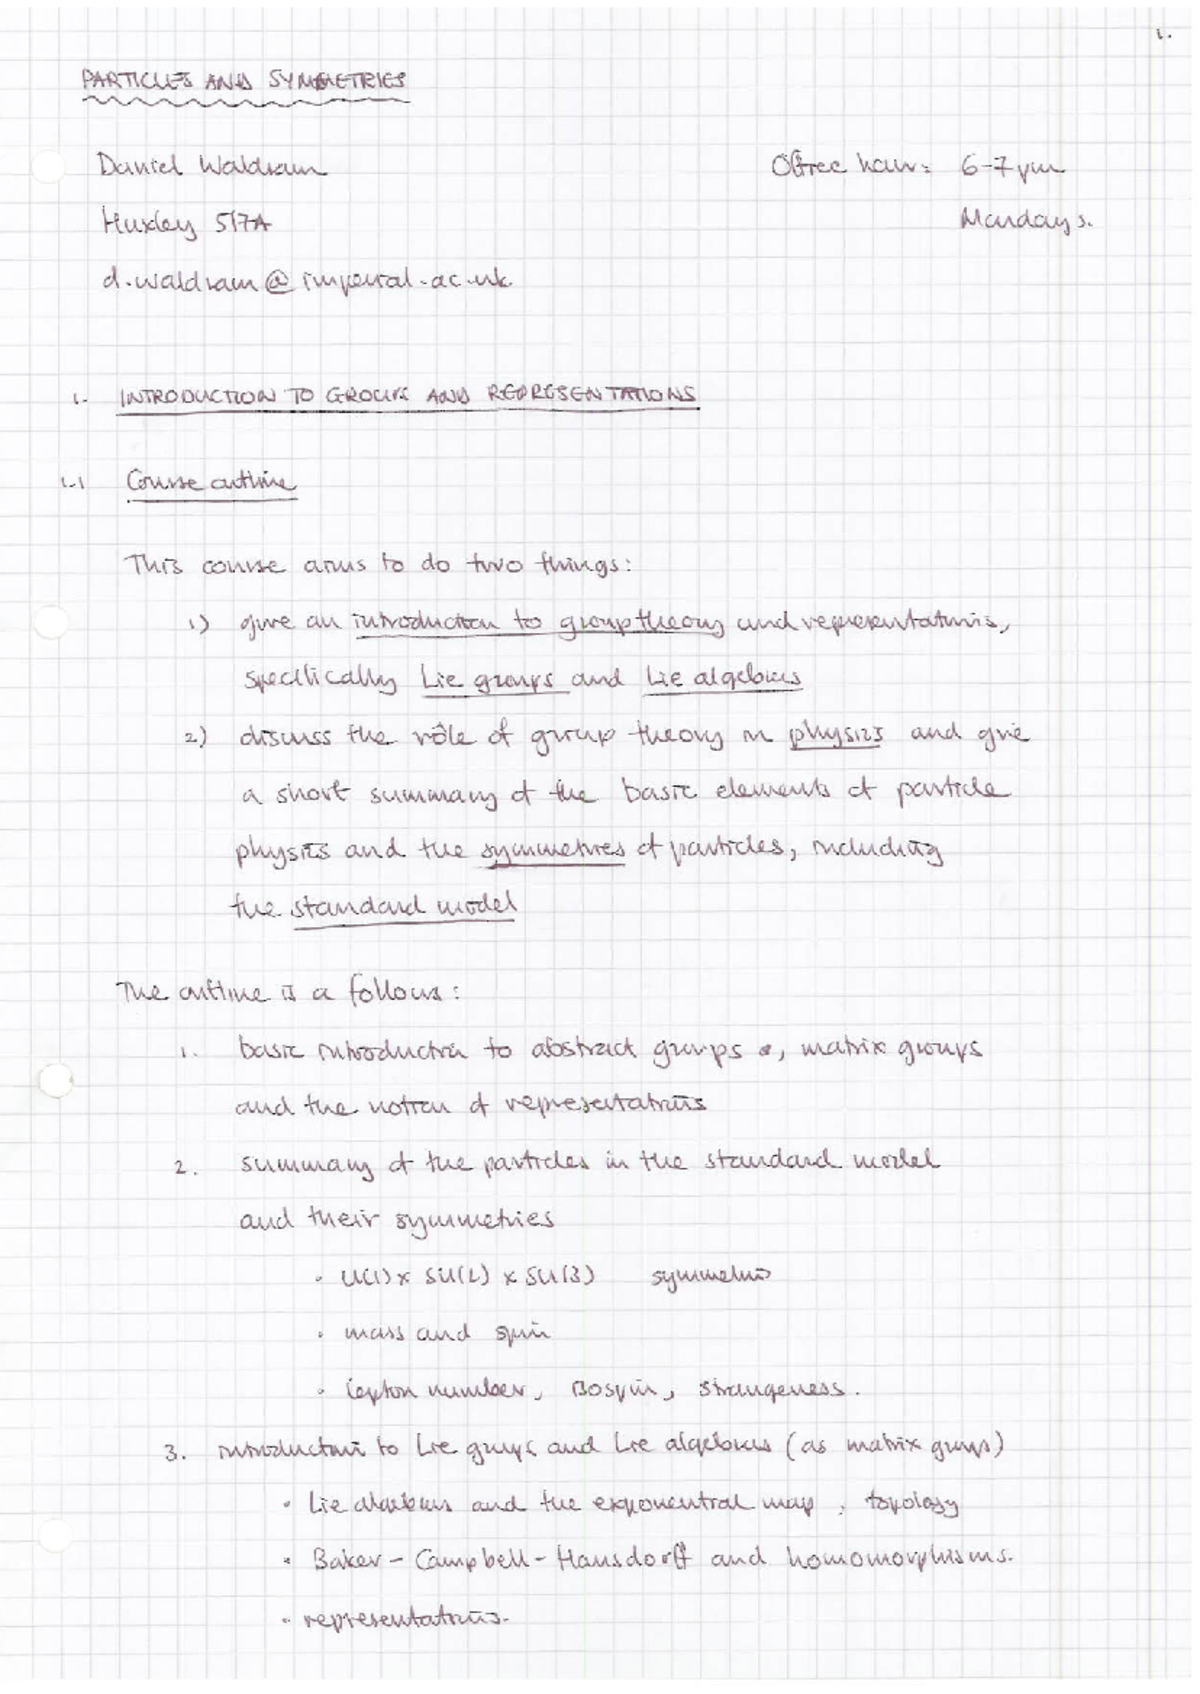 1.
PARTICLES AND SYMMETRIES
Daniel Waldram Office hour: 6-7pm
Huxley 517A Mondays.
d.waldram@imperial.ac.uk
1. INTRODUCTION TO GROUPS AND REPRESENTATIONS
1.1 Course outline
This course aims to do two things:
1) give an introduction to group theory and representations,
specifically Lie groups and Lie algebras
2) discuss the rôle of group theory in physics and give
a short summary of the basic elements of particle
physics and the symmetries of particles, including
the standard model
The outline is a follows:
1. basic introduction to abstract groups, matrix groups
and the notion of representations
2. summary of the particles in the standard model
and their symmetries
• U(1) x SU(2) x SU(3) symmetries
• mass and spin
• lepton number, isospin, strangeness.
3. introduction to Lie groups and Lie algebras (as matrix groups)
• Lie algebras and the exponential map, topology
• Baker-Campbell-Hausdorff and homomorphisms.
• representations.